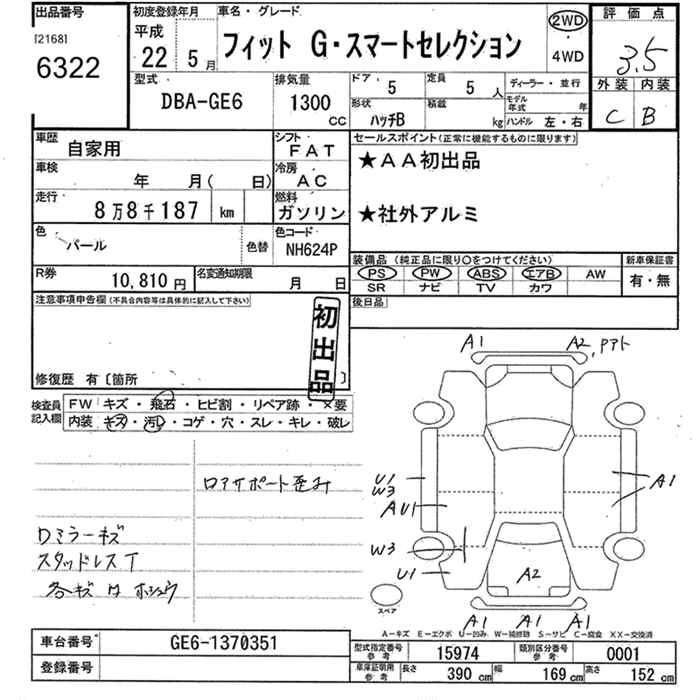 出品番号
[2168]
6322
初度登録年月
平成
22 5月
車名・グレード
フィット G・スマートセレクション
2WD
4WD
評価点
3.5
外装 内装
C B
型式
DBA-GE6
排気量
1300
CC
ドア 5
定員 5 人
ディーラー・並行
形状 ハッチB
積載 kg
モデル年式 年
ハンドル 左・右
車歴 自家用
シフト FAT
車検 年 月( 日)
冷房 AC
走行 8万8千187 km
燃料 ガソリン
色 パール
色替
色コード NH624P
R券 10,810円
名変通知期限 月 日
セールスポイント(正常に機能するものに限ります)
★AA初出品
★社外アルミ
装備品(純正品に限り○をつけてください)
新車保証書
PS PW ABS エアB AW
SR ナビ TV カワ
有・無
後日品
注意事項申告欄(不具合内容等は具体的に記入して下さい)
初出品
修復歴 有〔箇所 〕
検査員記入欄
FW キズ・飛石・ヒビ割・リペア跡・×要
内装 キズ・汚レ・コゲ・穴・スレ・キレ・破レ
ロアサポート歪み
ワミラーキズ
スタッドレスT
各キズ
A1 A2
U1
W3
AU1
W3
U1
A1
A2
A1 A1 A1
スペア
A-キズ E-エクボ U-凹み W-補修跡 S-サビ C-腐食 XX-交換済
車台番号 GE6-1370351
登録番号
型式指定番号 参考 15974
類別区分番号 参考 0001
車庫証明用 参考 長さ 390 cm 幅 169 cm 高さ 152 cm